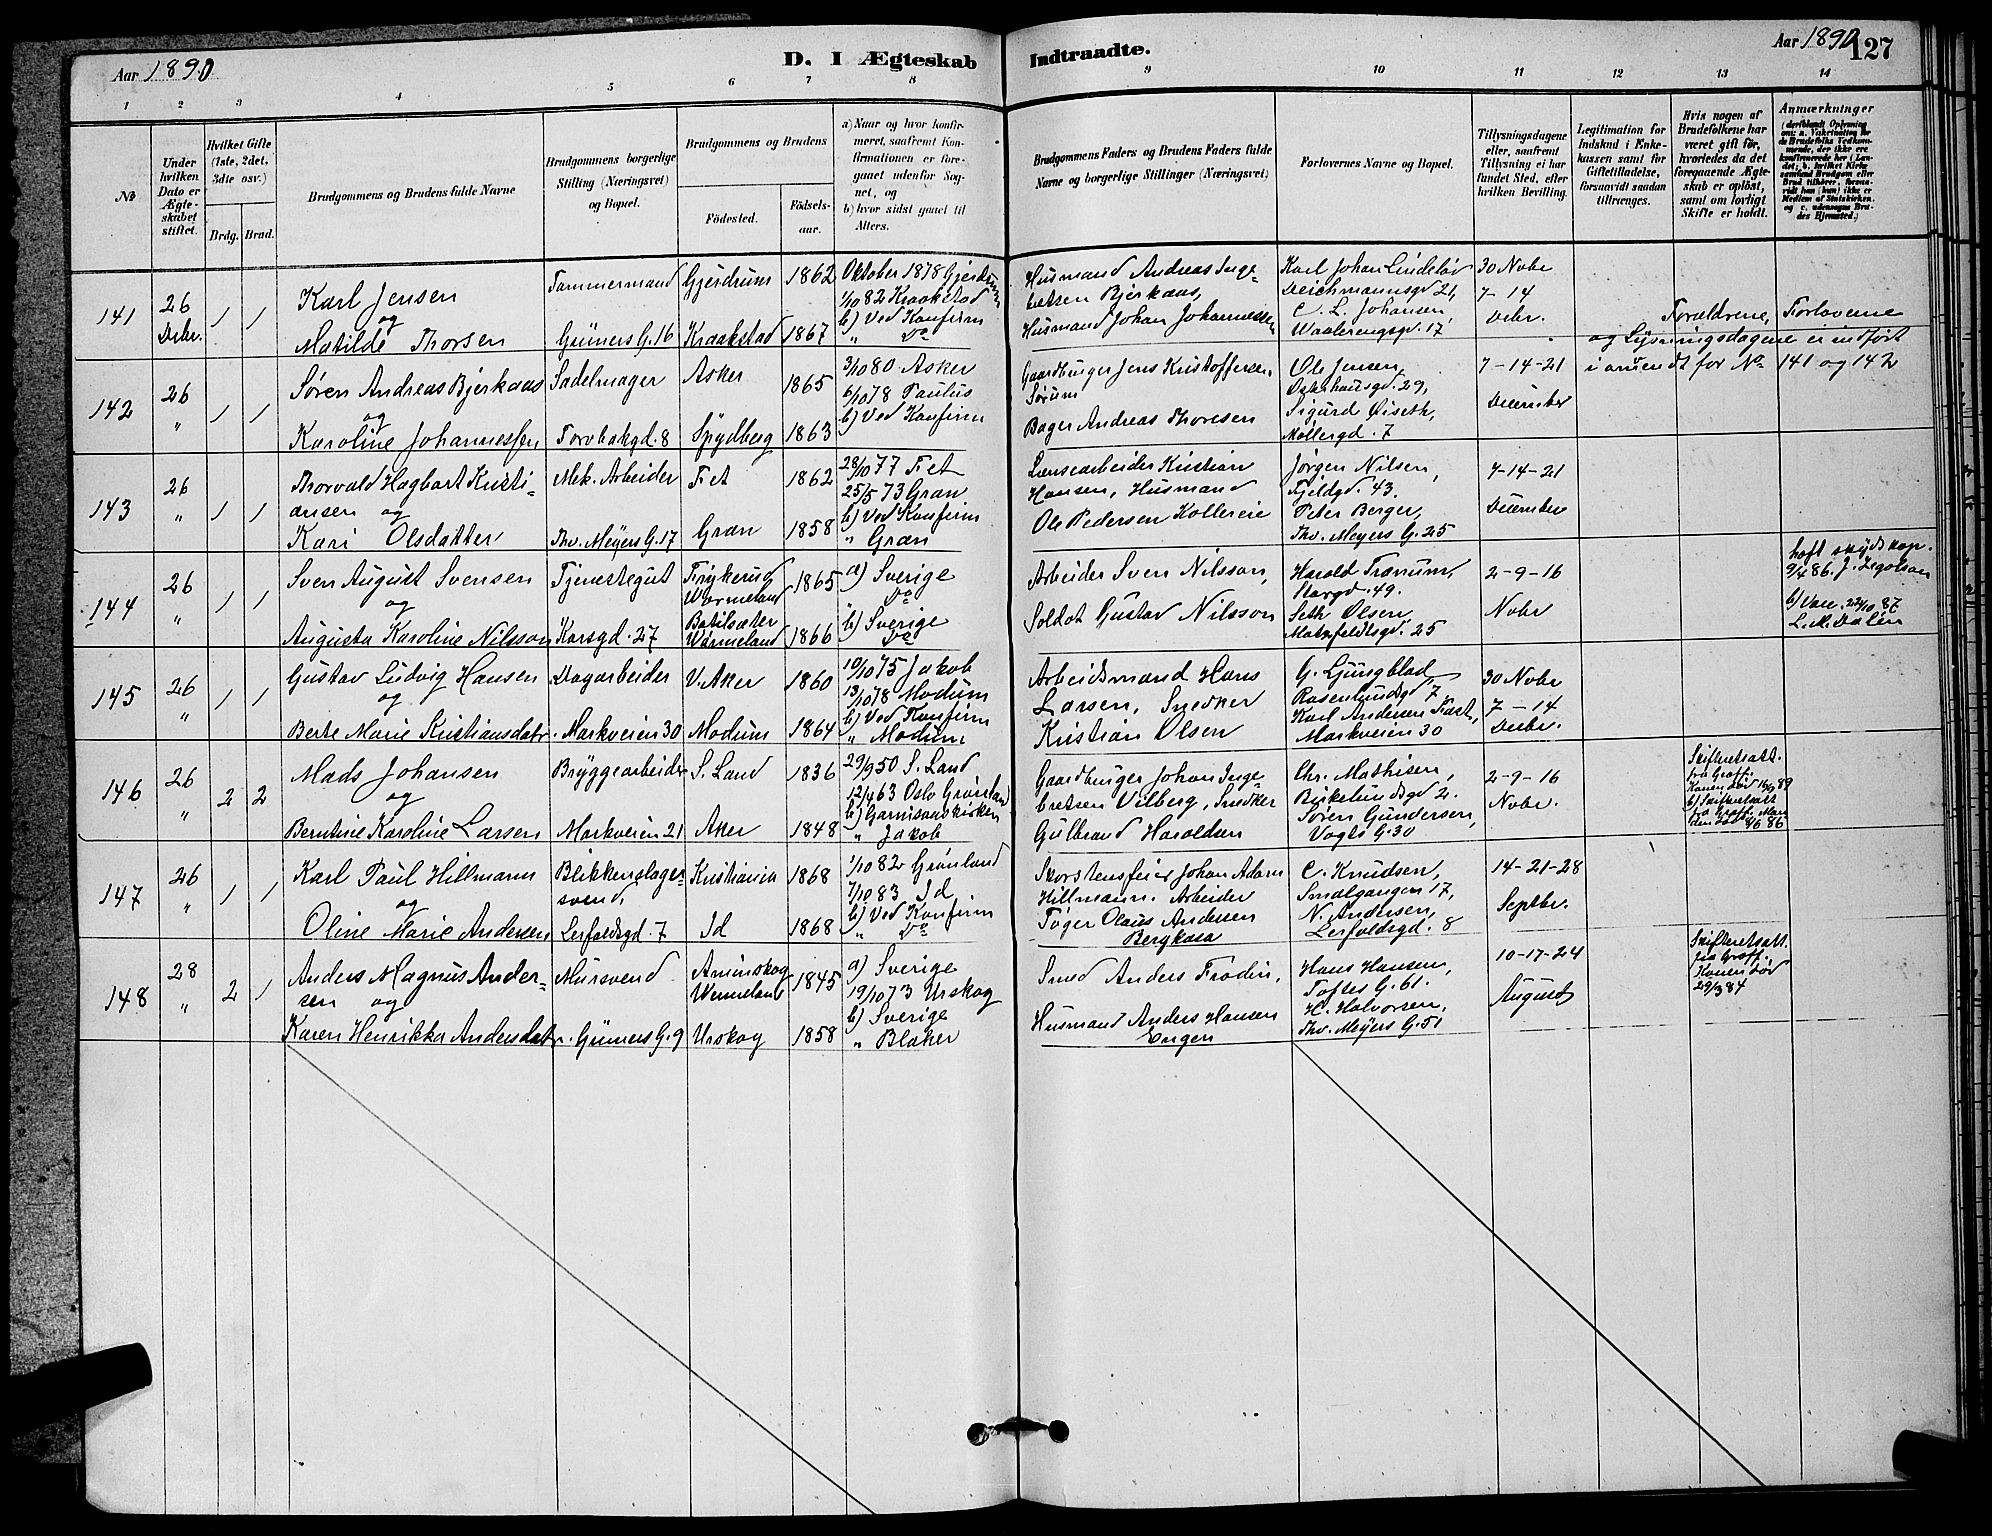 Aar 1890
D. I Ægteskab
Indtraadte.
Aar 1890
127
1 2 3 4 5 6 7 8 9 10 11 12 13 14
№
Under hvilken Dato er Ægteskabet stiftet.
Hvilket Gifte (1ste, 2det, 3die osv.)
Brdg. Brud.
Brudgommens og Brudens fulde Navne
Brudgommens borgerlige Stilling (Næringsvei) og Bopæl.
Brudgommens og Brudens
Fødested.
Fødselsaar.
a) Naar og hvor konfirmeret, saafremt Konfirmationen er foregaaet udenfor Sognet, og
b) hvor sidst gaaet til Alters.
Brudgommens Faders og Brudens Faders fulde Navne og borgerlige Stillinger (Næringsvei)
Forlovernes Navne og Bopæl.
Tillysningsdagene eller, saafremt Tillysning ei har fundet Sted, efter hvilken Bevilling.
Legitimation for Indskud i Enkekassen samt for Giftetilladelse, forsaavidt saadan tiltrænges.
Hvis nogen af Brudefolkene har været gift før, hvorledes da det foregaaende Ægteskab er opløst, samt om lovligt Skifte er holdt.
Anmærkninger
141 26 Debr. 1 1
Karl Jensen
og
Matilde Thorsen
Tømmermand
Grüners G. 16
Gjerdrum 1862
Kraakstad 1867
Oktober 1878 Gjerdrum
1/10 82 Kraakstad
b) Ved Konfirm
" Do
Husmand Andreas Ingebretsen Bjerkaas,
Husmand Johan Johannessen
Karl Johan Lindeløv
Deichmannsgd 21,
C. L. Johansen,
Waalerengsgd. 17
30 Nobr
7-14
Debr.
Forældrene, Forloverne
og Lysningsdagene ei indført
i orden for No 141 og 142
142 26 " 1 1
Søren Andreas Bjerkaas
og
Karoline Johannessen
Sadelmager
Torvbakgd. 8
Asker 1865
Spydberg 1863
3/10 80 Asker
6/10 78 Paulus
b) Ved Konfirm
Gaardbruger Jens Kristoffersen
Sørum
Bager Andreas Thoresen
Ole Jensen,
Osterhausgd. 29,
Sigurd Øiseth,
Møllergd. 7
7-14-21
December
143 26 " 1 1
Thorvald Hagbart Kristiansen og
Kari Olsdatter
Mek. Arbeider
Thv. Meyers G. 17
Fet 1862
Gran 1858
28/10 77 Fet
25/5 73 Gran
b) Ved Konfirm
" Gran
Lænsearbeider Kristian
Hansen, Husmand
Ole Pedersen Kollereie
Jørgen Nilsen,
Fjeldgd. 43.
Peter Berger,
Thv. Meyers G. 25
7-14-21
December
144 26 " 1 1
Sven August Svensen
og
Augusta Karoline Nilsson
Tjenestegut
Korsgd. 27
Frykerud
Wermeland 1865
Botilsæter
Wermeland 1866
a) Sverige
" Do
b) Sverige
Do
Arbeider Sven Nilsson,
Soldat Gustav Nilsson
Harold Tranum,
Storgd. 49.
Seth Olsen,
Motzfeldtsgd. 25
2-9-16
Nobr
9/4 86.
b) Vac. 22/10 87
L. M. Dalen
145 26 " 1 1
Gustav Ludvig Hansen
og
Berte Marie Kristiansdatr.
Dagarbeider
Markveien 30
V. Aker 1860
Modum 1864
10/10 75 Jakob
13/10 78 Modum
b) Ved Konfirm
" Modum
Arbeidsmand Hans
Larsen, Snedker
Kristian Olsen
G. Ljungblad
Rosenlundsgd 7,
Karl Andersen Fast,
Markveien 30
30 Nobr
7-14
Debr.
146 26 " 2 2
Mads Johansen
og
Berntine Karoline Larsen
Bryggearbeider
Markveien 21
S. Land 1836
Aker 1848
29/9 50 S. Land
12/4 63 Oslo Grønland
b) Garnisonskirken
" Jakob
Gaardbruger Johan Ingebretsen Vilberg, Snedker
Gulbrand Haroldsen
Chr. Mathisen,
Birkelundsgd 2.
Søren Gundersen,
Vogts G. 30
2-9-16
Nobr.
Skifteretsatt.
fra Groff.
Konen død 16/9 89
b) Skifteretsatt
fra Groff. Manden død 8/6 86
147 26 " 1 1
Karl Paul Hillmann
og
Oline Marie Andersen
Blikkenslagersvend,
Lerfaldsgd. 7
Kristiania 1868
Id 1868
1/10 82 Grønland
7/10 83 Id
b) Ved Konfirm
" Do
Skorstensfeier Johan Adam
Hillmann. Arbeider
Tøger Olaus Andersen
Bergkasa
C. Knudsen,
Smalgangen 17,
N. Andersen,
Lerfoldsgd. 8
14-21-28
Septbr.
148 28 " 2 1
Anders Magnus Andersen og
Karen Henrikka Andersdatr.
Mursvend
Grüners G. 9
Aminskog
Wermeland 1845
Urskog 1858
a) Sverige
19/10 73 Urskog
b) Sverige
" Blaker
Smed Anders Frodin,
Husmand Anders Hansen
Engen
Hans Hansen,
Toftes G. 61.
H. Halvorsen,
Thv. Meyers G. 51
10-17-24
August
Skifteretsatt.
fra Groff.
Konen død
29/3 84